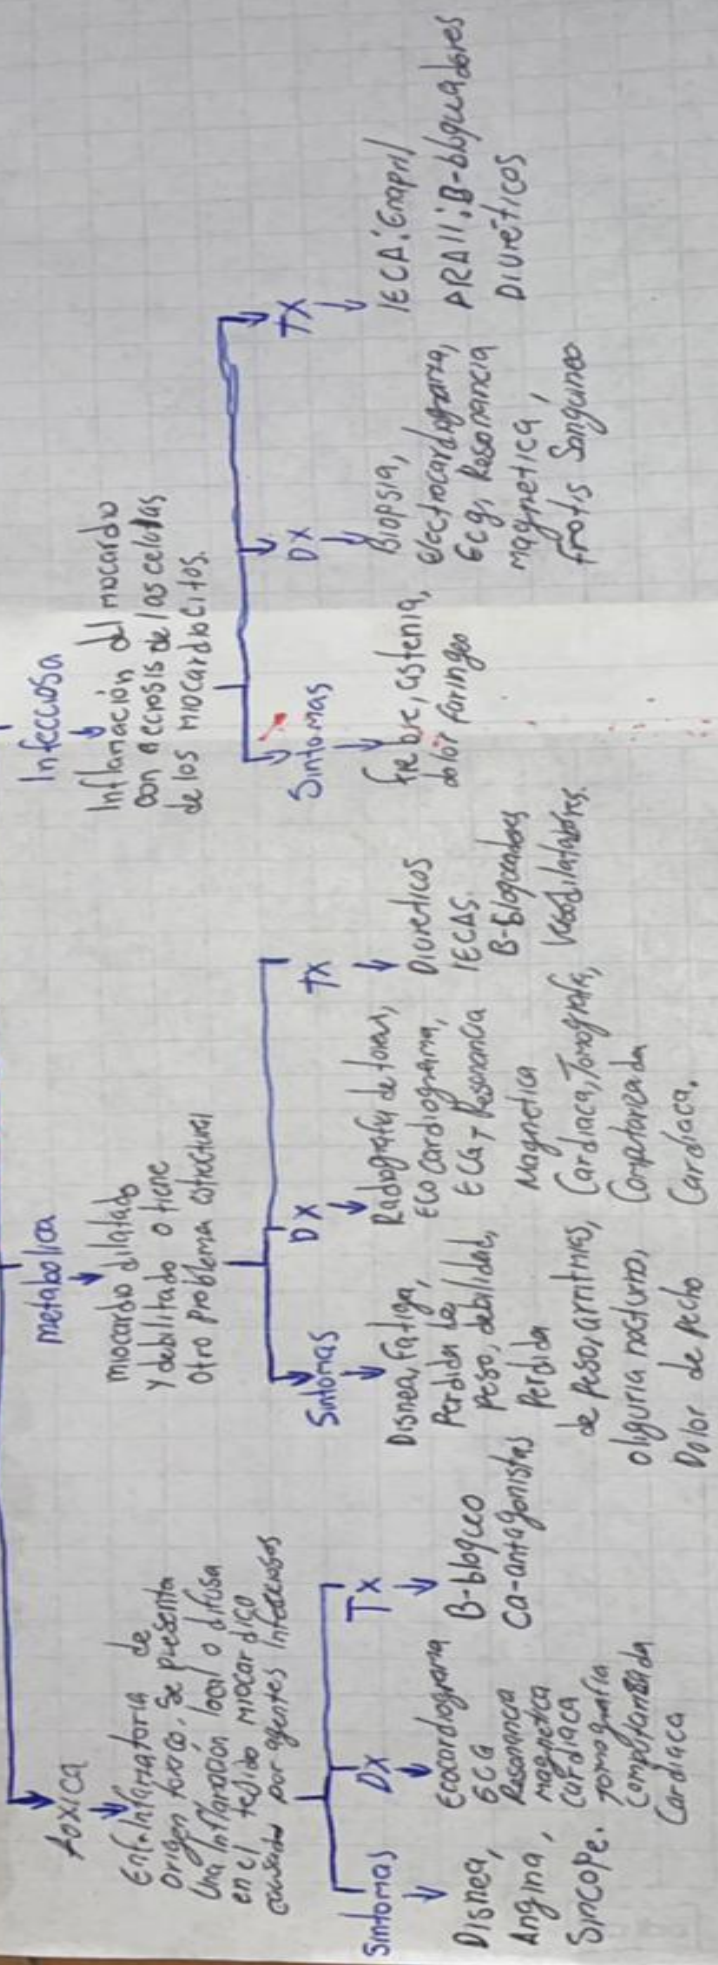 toxica
Enf. Inflamatoria de
Origen toxico, Se presenta
Una Inflamación local o difusa
en el tejido miocardico
causado por agentes Infecciosos
Sintomas
Disnea,
Angina,
Sincope.
Dx
Ecocardiograma
ECG
Resonancia
magnetica
cardiaca
tomografia
computarizada
Cardiaca
Tx
B-bloqueo
Ca-antagonistas
metabolica
miocardio dilatado
y debilitado o tiene
otro problema estructural
Sintomas
Disnea, Fatiga,
Perdida de
peso, debilidad,
Perdida
de peso, arritmias,
oliguria nocturna,
Dolor de pecho
Dx
Radiografia de torax,
Ecocardiograma,
ECG, Resonancia
Magnetica
Cardiaca, Tomografia,
Computarizada
Cardiaca.
Tx
Diureticos
IECAS.
B-bloqueadores
Vasodilatadores.
Infecciosa
Inflamación del miocardio
con necrosis de las celulas
de los miocardiocitos.
Sintomas
fiebre, astenia,
dolor faringeo
Dx
Biopsia,
electrocardiograma,
Ecg, Resonancia
magnetica,
frotis Sanguineo
Tx
IECA: Enapril
ARAII: B-bloqueadores
Diuréticos